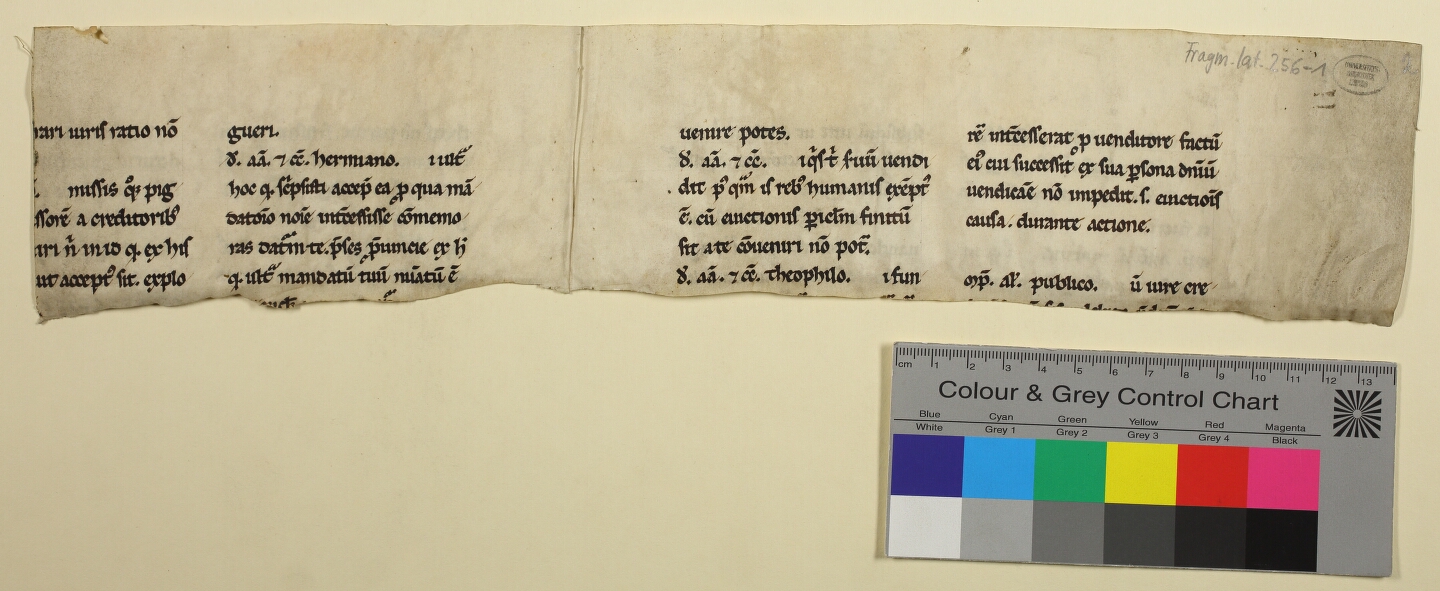 ari iuris ratio nō
missis q̄s pig
ssorē a creditorib⁹
ari n̄ in id q. ex his
ut accept⁹ sit. explo
gueri.
d. aā. ⁊ cē. hermiano. i ult̄
hoc q. sc̄psisti accep̄ ea ꝓ qua mā
datoīo noīe int̄cessisse cōmemo
ras dat̄m te. p̄ses p̄uincie ex h̄
q. ult̄ mandatū tuū nūatū ē
uenire potes.
d. aā. ⁊ cē. fuū uendi
dit p⁹ q̄m is reb⁹ humanis exēpt⁹
ē. cū euictionis ꝑiclm finitū
sit a te cōueniri nō pot̄.
d. aā. ⁊ cē. theophilo. i fun
rē int̄cesserat ꝓ uenditore factū
ei⁹ cui successit ex sua ꝑsona dn̄iū
uendicāe nō impedit. s. euictiōis
causa. durante actione.
mp̄. al̄. publico. ū iure cre
Fragm. lat. 256-1
cm 1 2 3 4 5 6 7 8 9 10 11 12 13
Colour & Grey Control Chart
Blue Cyan Green Yellow Red Magenta
White Grey 1 Grey 2 Grey 3 Grey 4 Black